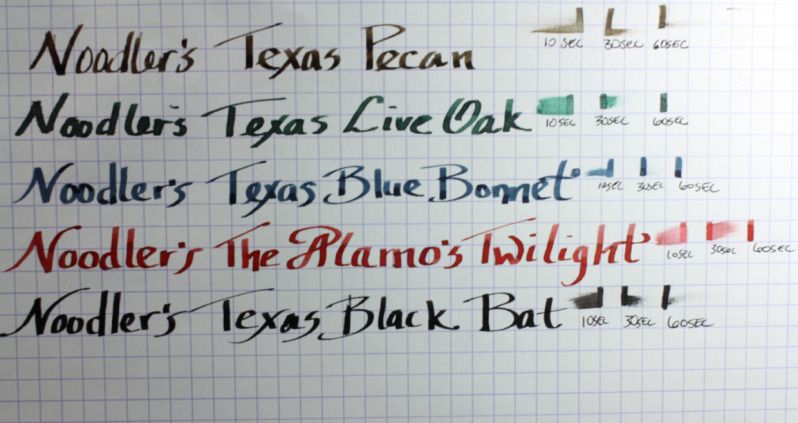 Noodler's Texas Pecan 10 SEC 30SEC 60SEC
Noodler's Texas Live Oak 10SEC 30SEC 60SEC
Noodler's Texas Blue Bonnet 10SEC 30SEC 60SEC
Noodler's The Alamo's Twilight 10SEC 30SEC 60SEC
Noodler's Texas Black Bat 10SEC 30SEC 60SEC